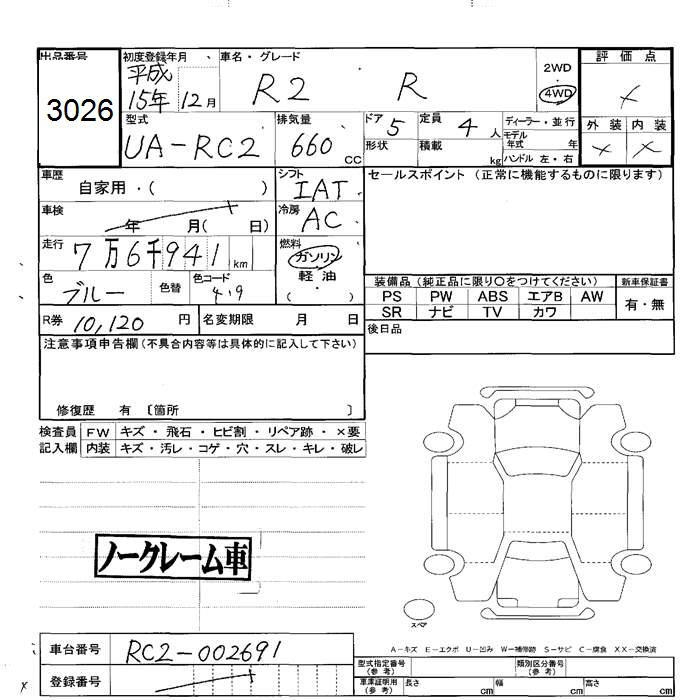 出品番号 初度登録年月 車名・グレード 評価点
3026 平成15年12月 R2 R 2WD 4WD ×
型式 排気量 ドア 定員 ディーラー・並行 外装 内装
UA-RC2 660cc 5 4人 モデル年式 年 × ×
形状 積載 kg ハンドル 左・右
車歴 自家用・( ) シフト IAT セールスポイント (正常に機能するものに限ります)
車検 年 月( 日) 冷房 AC
走行 7万6千941km 燃料 ガソリン・軽油 ( )
色 ブルー 色替 色コード 4.9
装備品 (純正品に限り○をつけてください) 新車保証書
PS PW ABS エアB AW 有・無
SR ナビ TV カワ
R券 10,120円 名変期限 月 日 後日品
注意事項申告欄 (不具合内容等は具体的に記入して下さい)
修復歴 有 〔箇所 〕
検査員 FW キズ・飛石・ヒビ割・リペア跡・×要
記入欄 内装 キズ・汚レ・コゲ・穴・スレ・キレ・破レ
ノークレーム車
スペア
車台番号 RC2-002691
登録番号
A-キズ E-エクボ U-凹み W-補修跡 S-サビ C-腐食 XX-交換済
型式指定番号(参考) 類別区分番号(参考)
車庫証明用(参考) 長さ cm 幅 cm 高さ cm